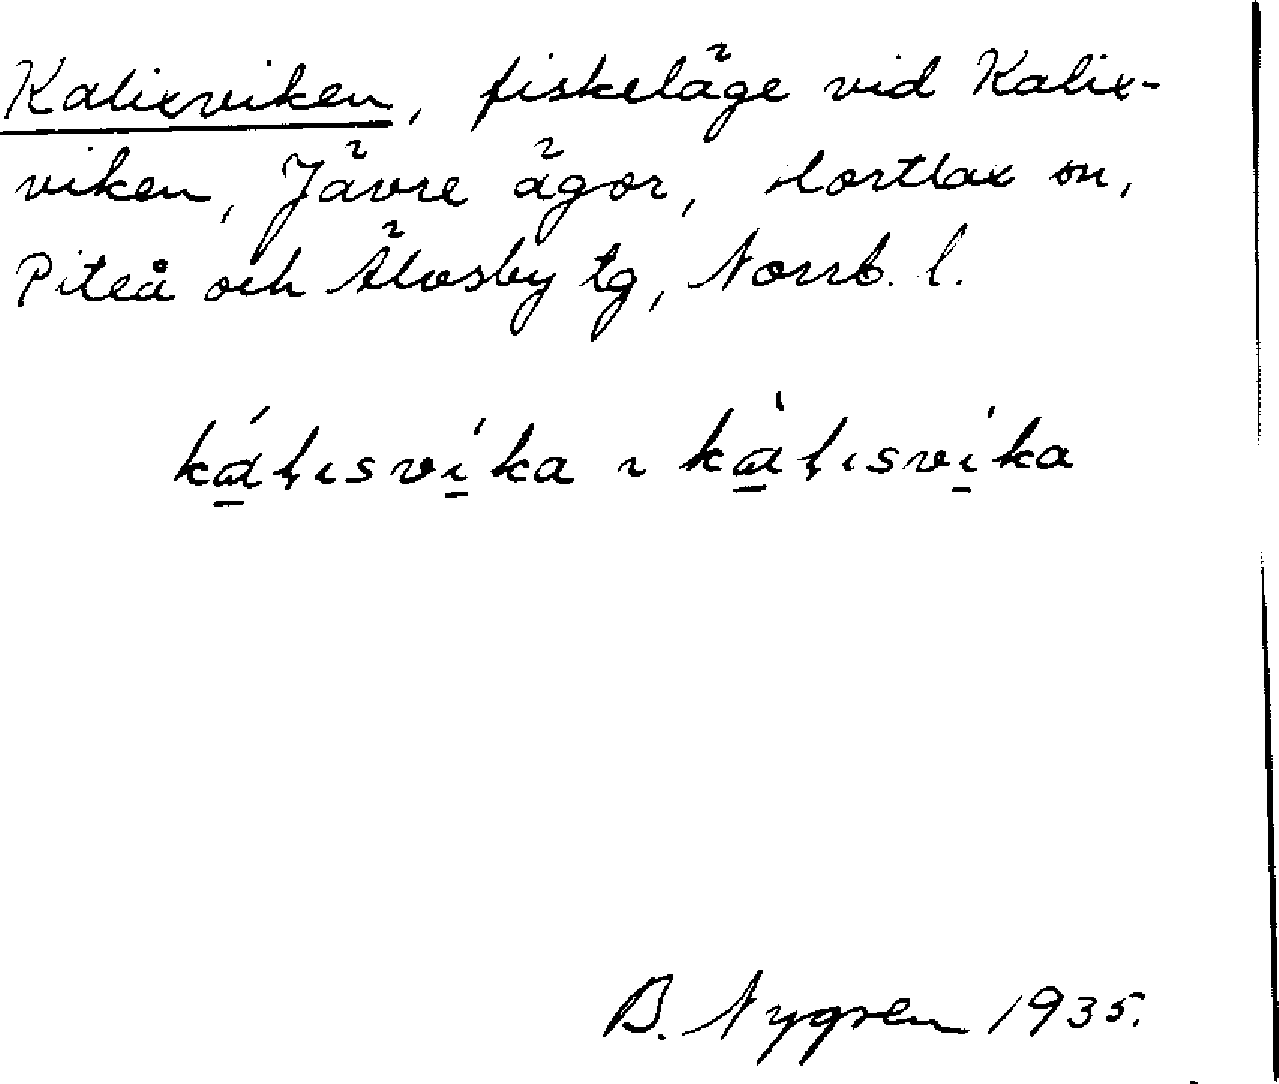 Kalixviken, fiskeläge vid Kalix-
viken, Jävre ägor, Hortlax sn,
Piteå och Älvsby tg, Norrb. l.
ká̱lısvı̱́ka ı kà̱lısvı̱́ka
B. Nygren 1935.